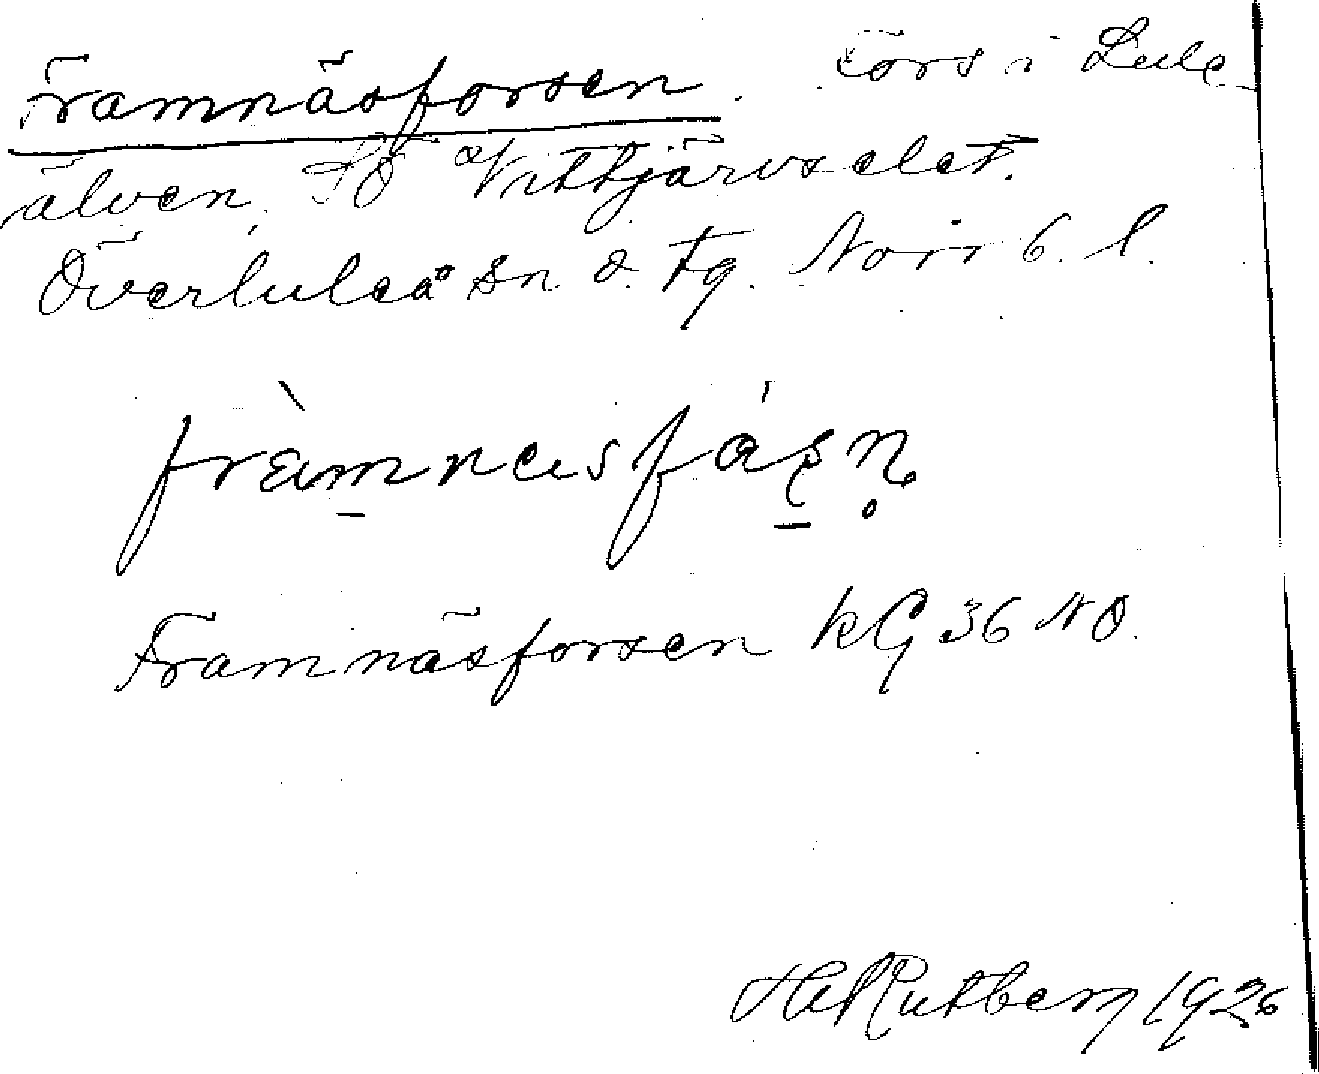 Framnäsforsen. Fors i Lule
älven, SO Vittjärvselet.
Överluleå sn o. tg. Norrb. l.
fràmnæsfáʂn̥
Framnäsforsen kG 36 NO.
Hj Rutberg 1926